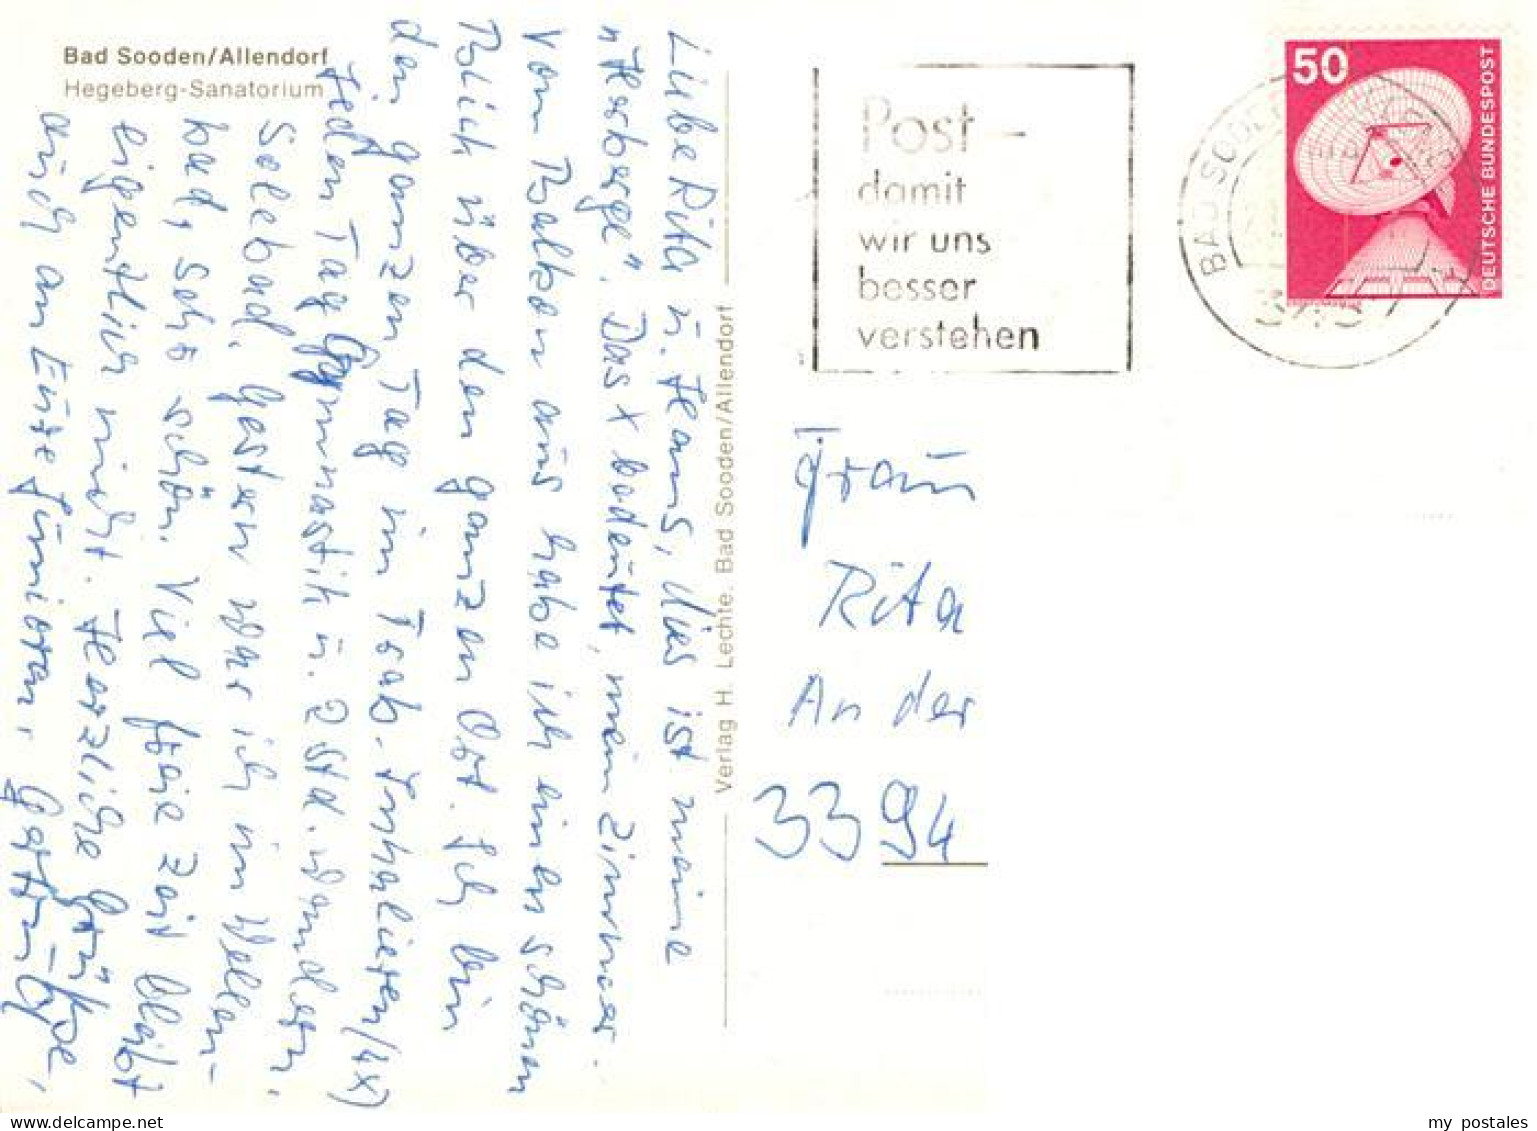 Bad Sooden/Allendorf
Hegeberg-Sanatorium
Liebe Rita u. Hans, dies ist meine
"Herberge". Das x bedeutet mein Zimmer.
Vom Balkon aus habe ich einen schönen
Blick über den ganzen Ort. Ich bin
den ganzen Tag im Trab. Inhalieren (4x)
jeden Tag Gymnastik u. 2 Std. wandern,
Solebad. Gestern war ich im Wellen-
bad, sehr schön. Viel freie Zeit bleibt
eigentlich nicht. Herzliche Grüße
auch an Eure Junioren,
Verlag H. Lechte, Bad Sooden/Allendorf
Post –
damit
wir uns
besser
verstehen
BAD SOODEN
50
DEUTSCHE BUNDESPOST
Frau
Rita
An der
3394
my postales